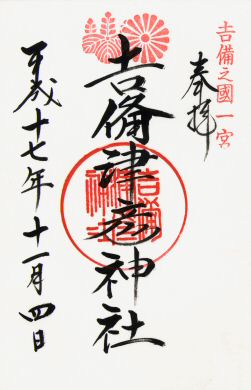 吉備之國一宮
奉拝
吉備津彦神社
平成十七年十一月四日